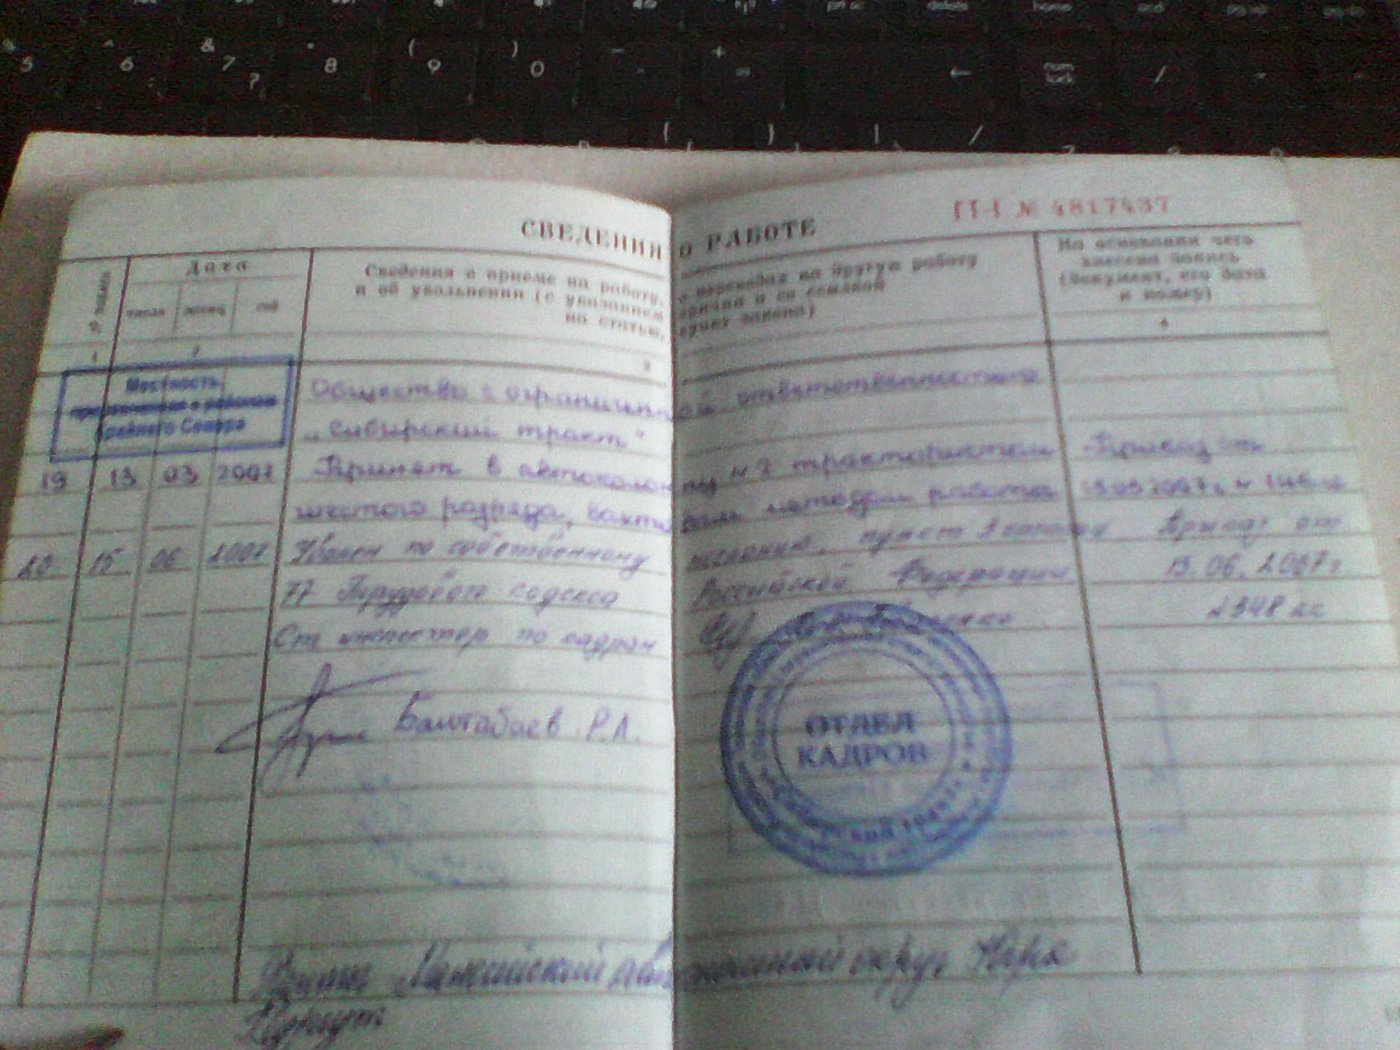 5 6 & 7 ? * 8 ( 9 ) 0 - + = ← num lock /
СВЕДЕНИЯ О РАБОТЕ
ГТ-I № 4817437
Дата
число месяц год
Сведения о приеме на работу, о переводах на другую работу
и об увольнении (с указанием причин и со ссылкой
на статью, пункт закона)
На основании чего
внесена запись
(документ, его дата
и номер)
1 2 3 4
Местность,
приравненная к районам
Крайнего Севера
Общество с ограниченной ответственностью
„Сибирский тракт"
19 13 03 2007 Принят в автоколонну № 2 трактористом Приказ от
шестого разряда, вахтовым методом работы 13.03.2007г. №
20 15 06 2007 Уволен по собственному желанию, пункт 3 статьи Приказ от
77 Трудового кодекса Российской Федерации 13.06.2007г.
Ст. инспектор по кадрам
Балтабаев Р.А.
ОТДЕЛ
КАДРОВ
Ханты Мансийский автономный округ Югра
Сургут